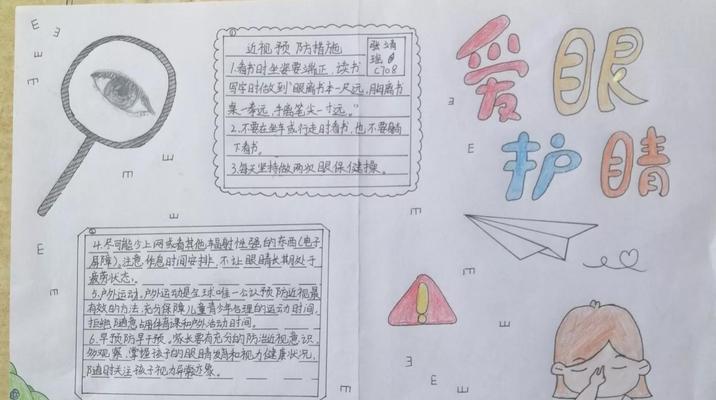 近视预防措施
1.看书时坐姿要端正,读书
写字时做到"眼离书本一尺远,胸离书
桌一拳远,手离笔尖一寸远。"
2.不要在坐车或行走时看书,也不要躺
下看书。
3.每天坚持做两次眼保健操。
C708
爱眼
护睛
4.尽可能少上网或看其他辐射性强的东西(电子
屏障),注意作息时间安排,不让眼睛长期处于
疲劳状态。
5.户外运动。户外运动是全球唯一公认预防近视最
有效的方法,充分保障儿童青少年合理的运动时间,
拒绝随意占用体育课和户外活动时间。
6.早预防早干预。家长要有充分的防治近视意识,
勿观察,掌握孩子的眼睛发育和视力健康状况,
随时关注孩子视力异常迹象。
E
E
E
E
E
E
E
E
E
E
E
E